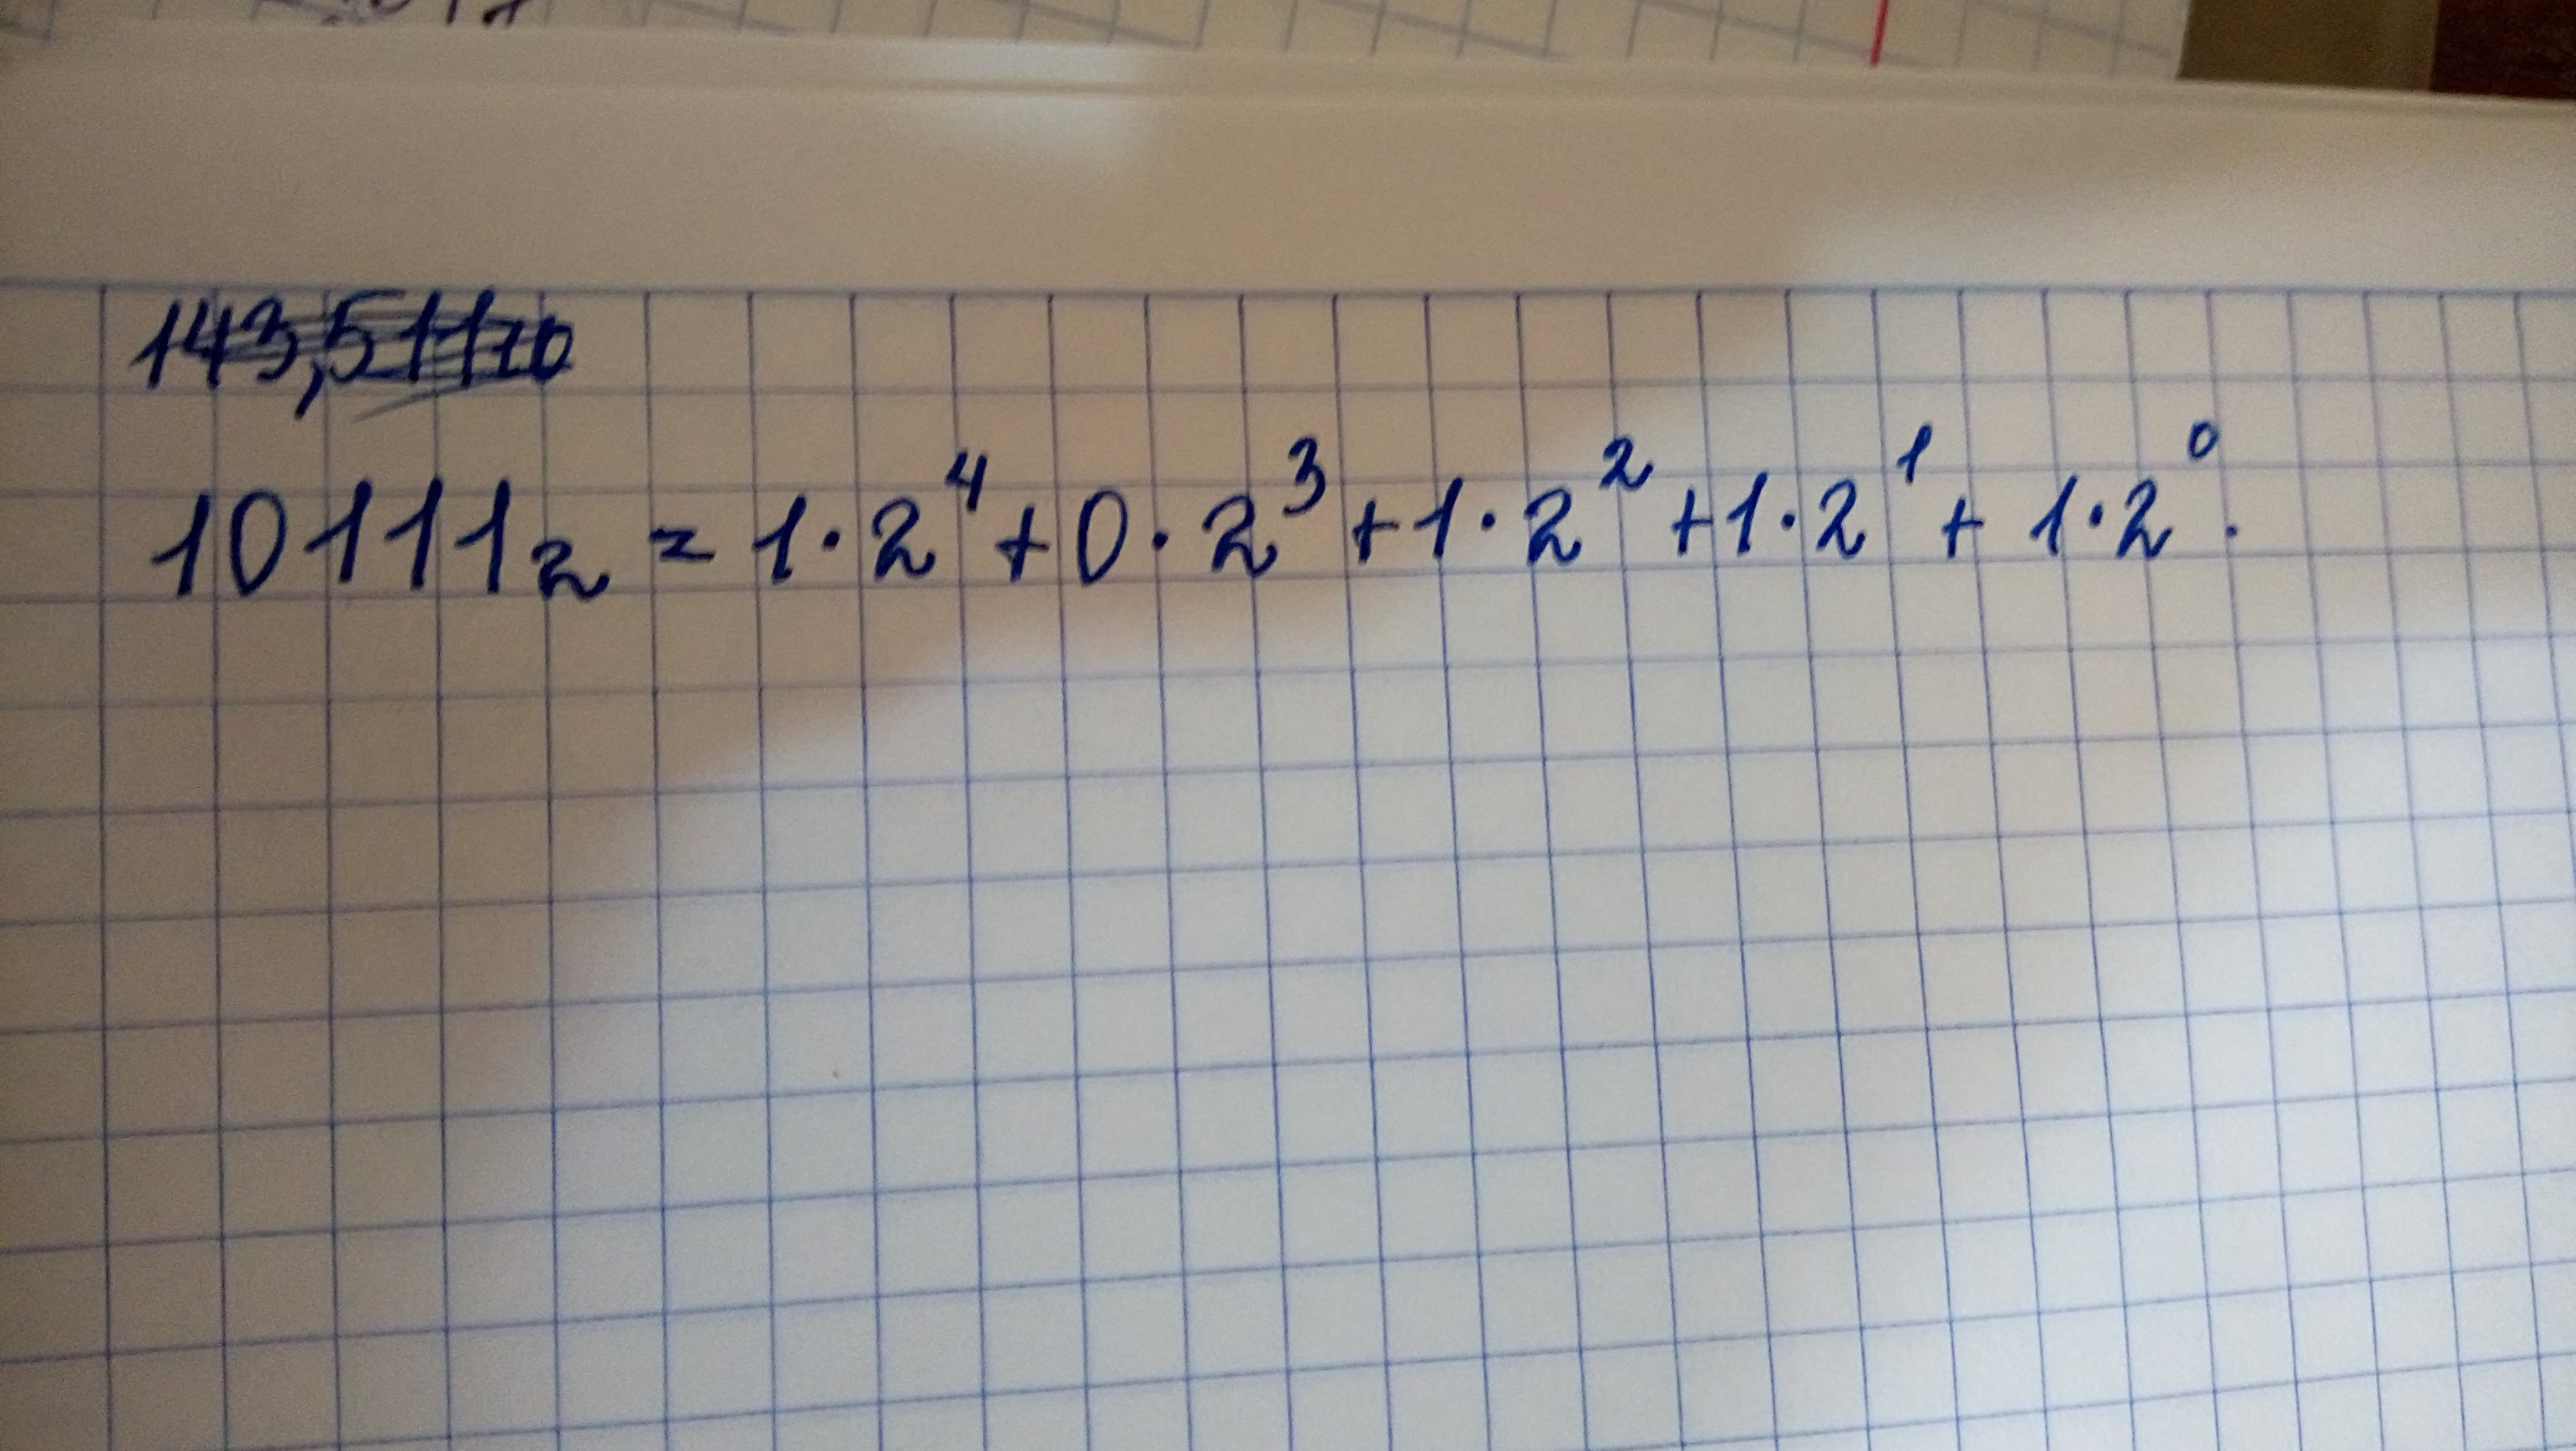 143,511₁₀
10111₂ = 1·2⁴+0·2³+1·2²+1·2¹+1·2⁰.